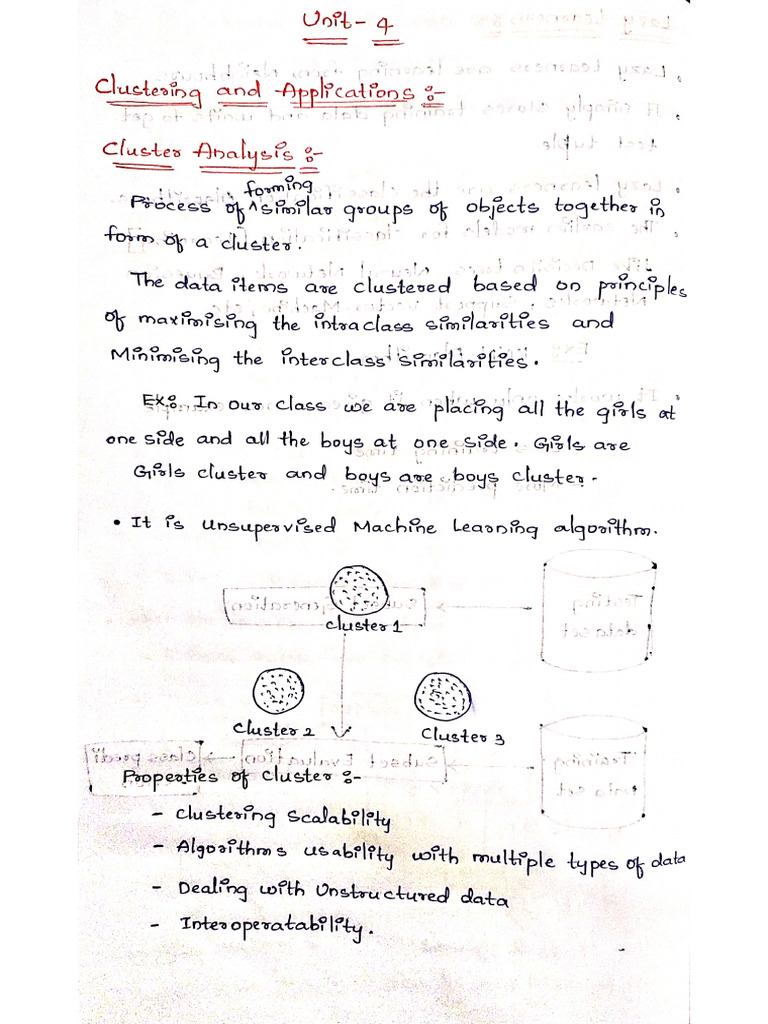 Unit - 4
Clustering and Applications :-
Cluster Analysis :-
forming
Process of ^ similar groups of objects together in
form of a cluster.
The data items are clustered based on principles
of maximising the intraclass similarities and
Minimising the interclass similarities.
Ex:- In our class we are placing all the girls at
one side and all the boys at one side. Girls are
Girls cluster and boys are boys cluster.
• It is unsupervised Machine Learning algorithm.
Cluster 1
Cluster 2
Cluster 3
Properties of Cluster :-
- Clustering Scalability
- Algorithms usability with multiple types of data
- Dealing with Unstructured data
- Interoperatability.